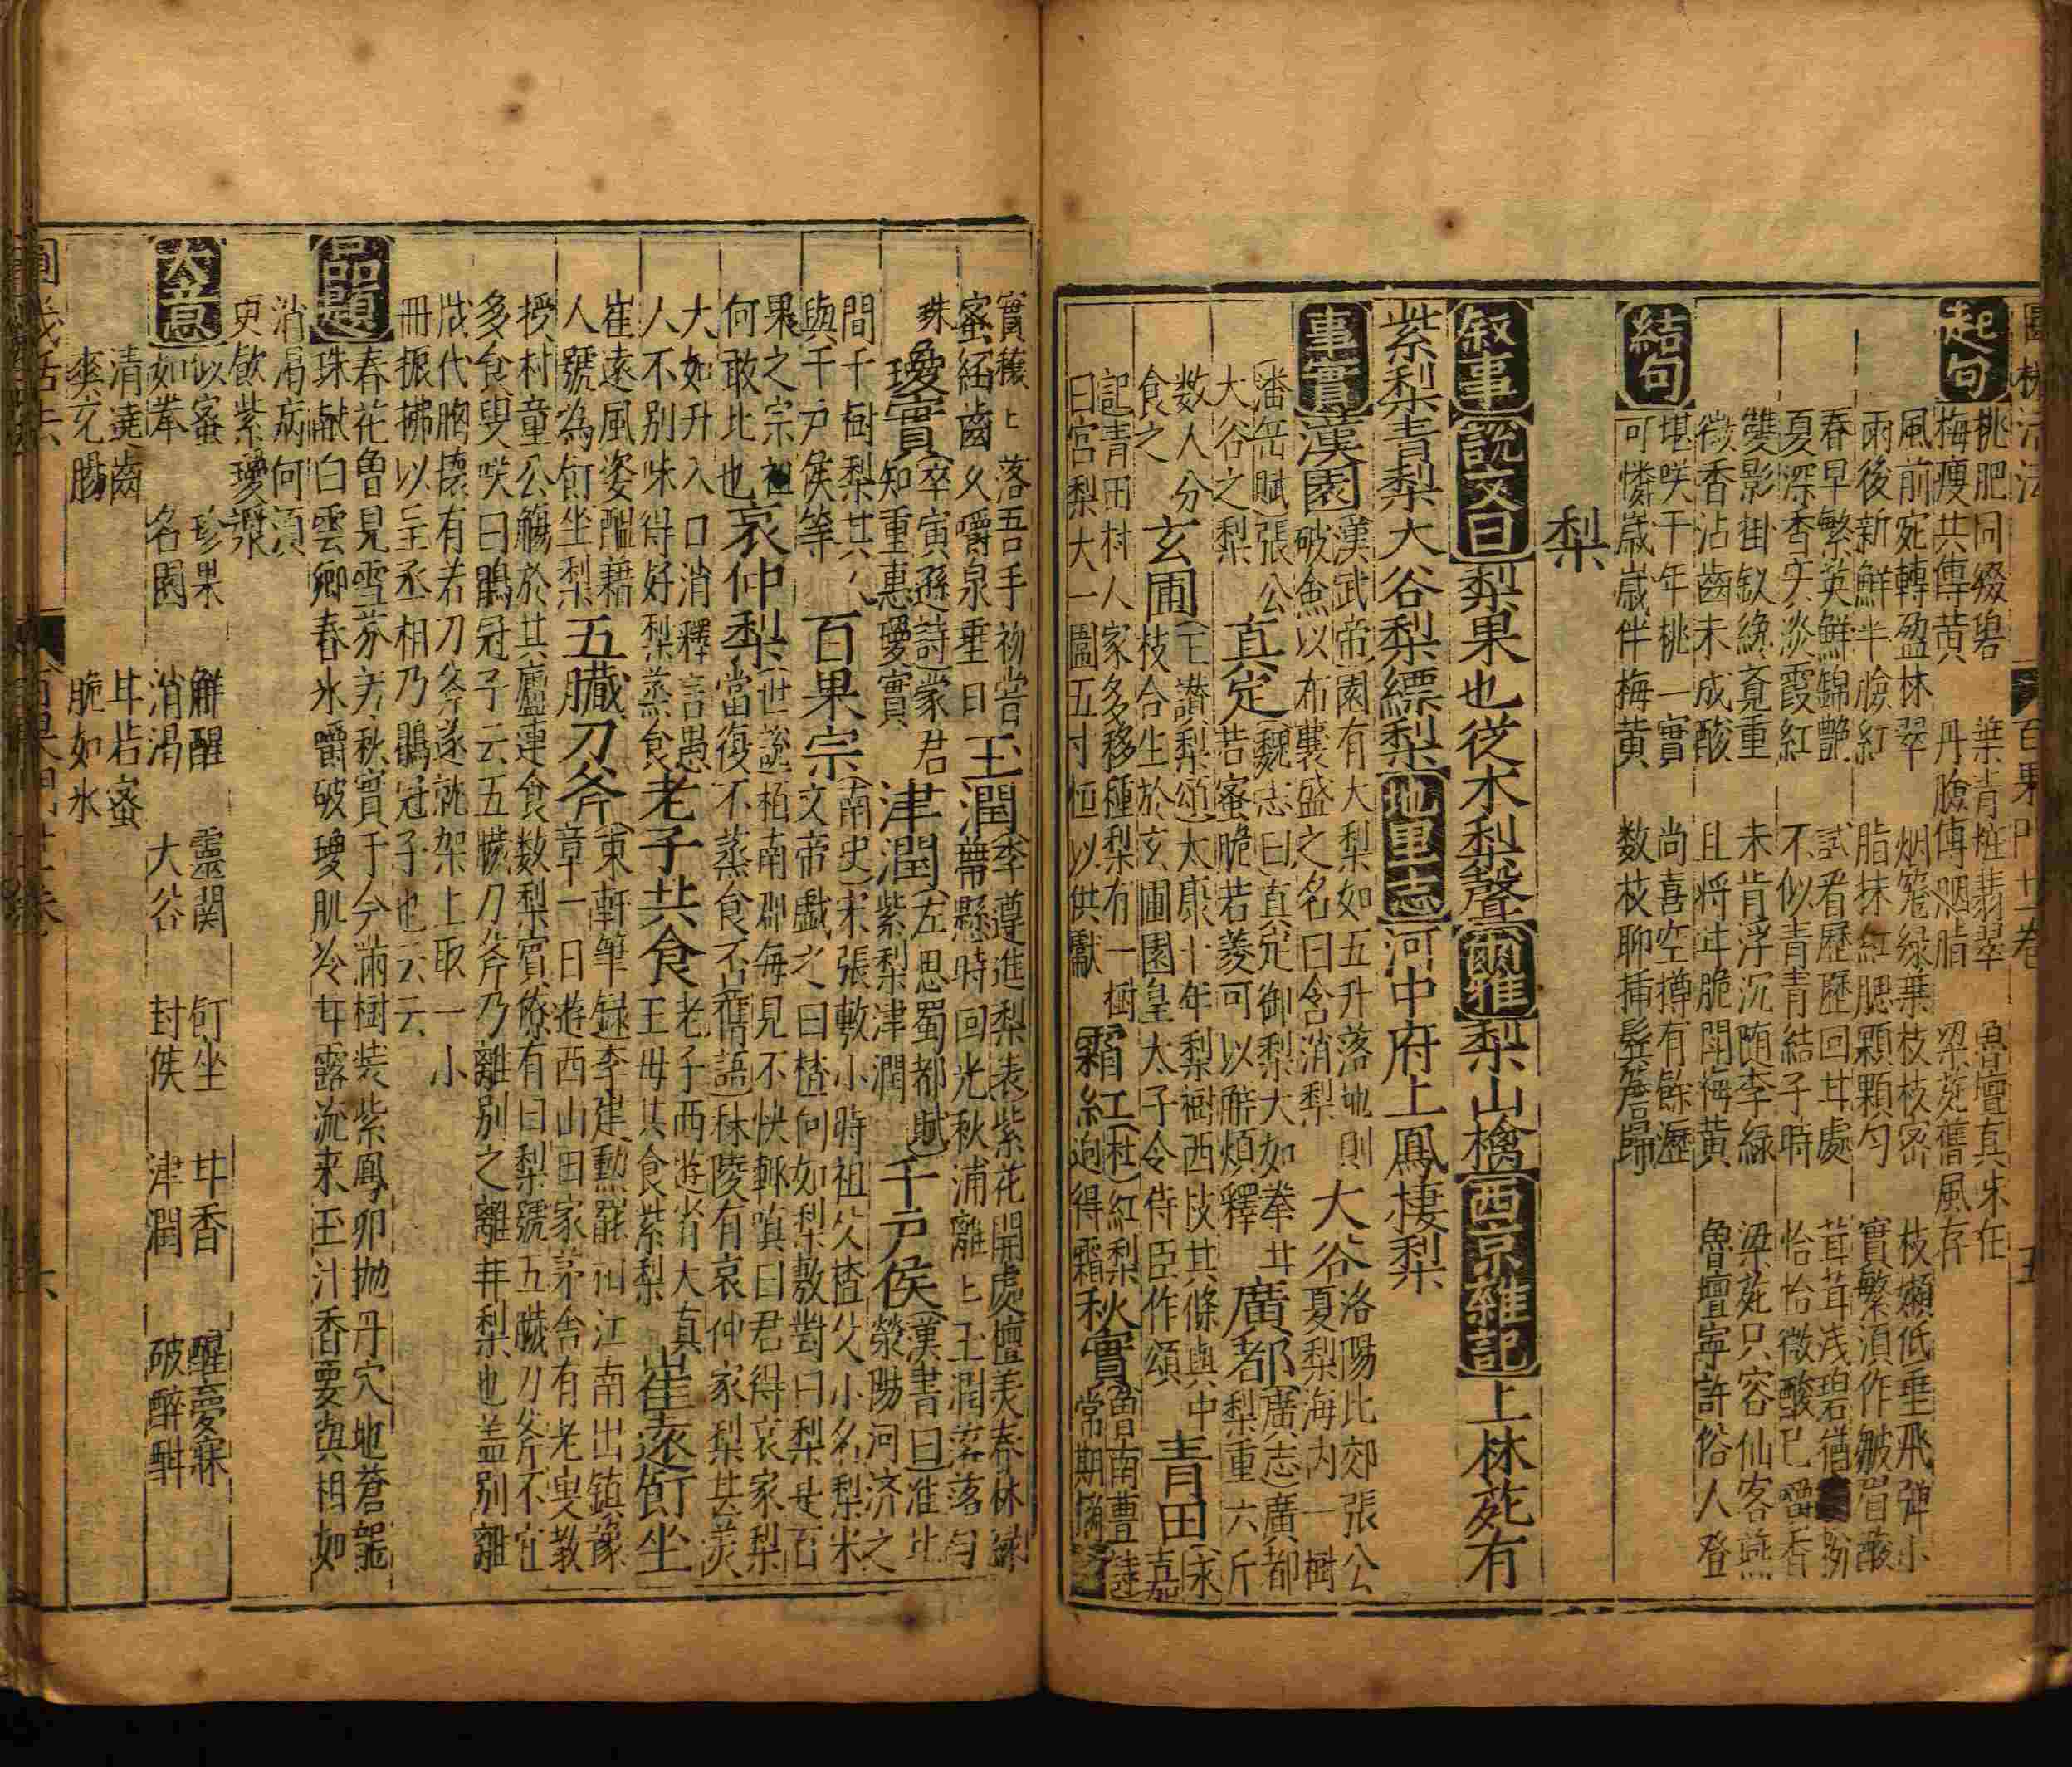 起句
桃肥同綴碧　葉青粧翡翠　魯壇真朱在
梅瘦共傳黄　丹臉傅胭脂　梁苑舊風存
風前宛轉盈林翠　烟籠緑葉枝枝密　枝嬾低垂飛彈小
雨後新鮮半臉紅　脂抹紅腮顆顆勻　實繁湏作皺眉酸
春早繁英鮮錦艶　試看歷歷回甘處　茸茸浅碧猶
夏深香实淡霞紅　不似青青結子時　恰恰微酸已嚼香
雙影掛釵綠竟重　未肯浮沉随李緑　梁苑只容仙客燕
微香沾齒未成酸　且将甘脆鬪梅黄　魯壇寧許俗人登
結句
堪咲千年桃一實　尚喜空樽有餘瀝
可憐歲歲伴梅黄　数枝聊揷鬂簷歸
梨
叙事　說文曰　梨果也從木梨聲　爾雅　梨山檎　西京雜記　上林苑有
紫梨青梨大谷梨縹梨　地里志　河中府上鳳棲梨
事實　漢園　漢武帝園有大梨如五升落地則
破㑒以布囊盛之名曰含消梨　大谷　洛陽北郊張公
夏梨海内一樹
潘岳賦張公
大谷之梨　真定　魏志曰真定御梨大如拳甘
若蜜脆若菱可以解煩釋　廣都　廣志廣都
梨重六斤
数人分
食之　玄圃　王讃梨頌太康十年梨樹四枝其條與中
枝合生於玄圃園皇太子令侍臣作頌　青田　永嘉
記青田村人家多移種梨有一樹
曰宫梨大一圍五寸恒以供獻　霜紅　杜紅梨
迥得霜　秋實　魯南豊
常期
實穰上落吾手初嘗
蜜經齒久嚼泉垂日　玉潤　李遵進梨表紫花開處檀美春林縹
蔕懸時回光秋浦離上玉潤落落勻
珠　瓊實　卒寅遜詩蒙君
知重惠瓊實　津潤　左思蜀都賦
紫梨津潤　千戶侯　漢書曰淮北
滎陽河济之
間千樹梨其人
與千户侯等　百果宗　南史宋張敷小時祖父楂父小名梨
文帝戯之曰楂何如梨敷對曰梨是百
果之宗祖
何敢比也　哀仲梨　世説栢南郡每見不快輙嗔曰君得哀家梨
當復不蒸食不　舊語秣陵有哀仲家梨甚美
大如升入口消釋言愚
人不别味得好梨蒸食　老子共食　老子西遊省大真
王母共食紫梨　崔遠飣坐
崔遠風姿醞藉
人號為飣坐梨　五臟刀斧　東軒筆録李建勳罷相江南出鎮豫
章一日遊西山田家茅舍有老叟教
授村童公觴於其廬連食数梨賓僚有曰梨號五臟刀斧不宜
多食叟咲曰鶡冠子云五臟刀斧乃離别之離非梨也盖别離
戕代胸懐有若刀斧遂就架上取一小
冊振拂以呈丞相乃鶡冠子也云云
品題
春花魯見雪芬芳秋實于今滿樹装紫鳳卵抛丹穴地蒼龍
珠献白雲卿春氷嚼破瓊肌冷甘露流来玉汁香要與相如
消渴病何湏
更飲紫瓊漿
合意
以蜜　珍果　觧醒　靈関　飣坐　甘香　醒夢寐
如拳　名園　消渴　大谷　封侯　津潤　破醉酣
清蕘齒　甘占蜜
爽充腸　脆如氷